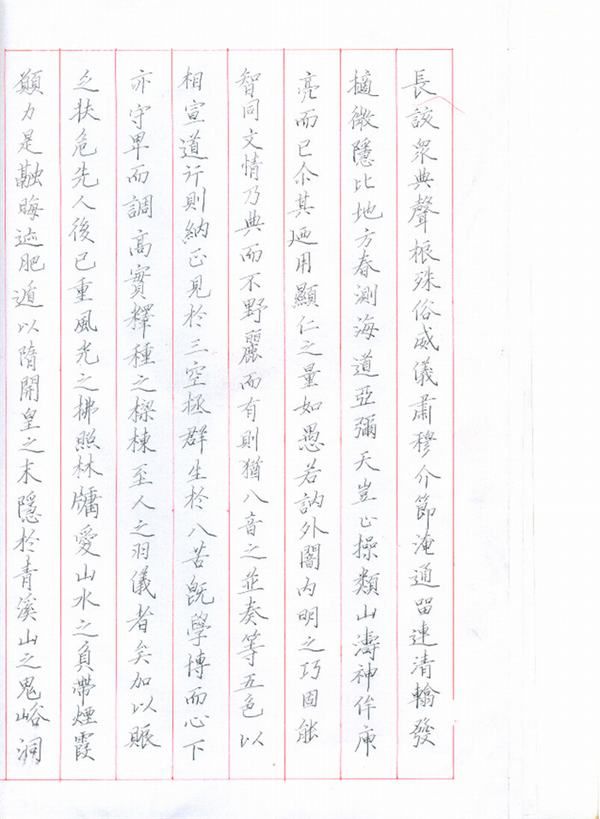 長該衆典聲振殊俗威儀肅穆介節淹通留連清翰發
擿微隱比地方春測海道亞彌天豈止操類山濤神侔庾
亮而已尒其廼用顯仁之量如愚若訥外闇内明之巧固能
智同文情乃典而不野麗而有則猶八音之並奏等五色以
相宣道行則納正見於三空拯群生於八苦旣學博而心下
亦守卑而調高實釋種之樑棟至人之羽儀者矣加以賑
乏扶危先人後已重風光之拂照林牖愛山水之負帶煙霞
願力是融晦迹肥遁以隋開皇之末隱於青溪山之鬼峪洞